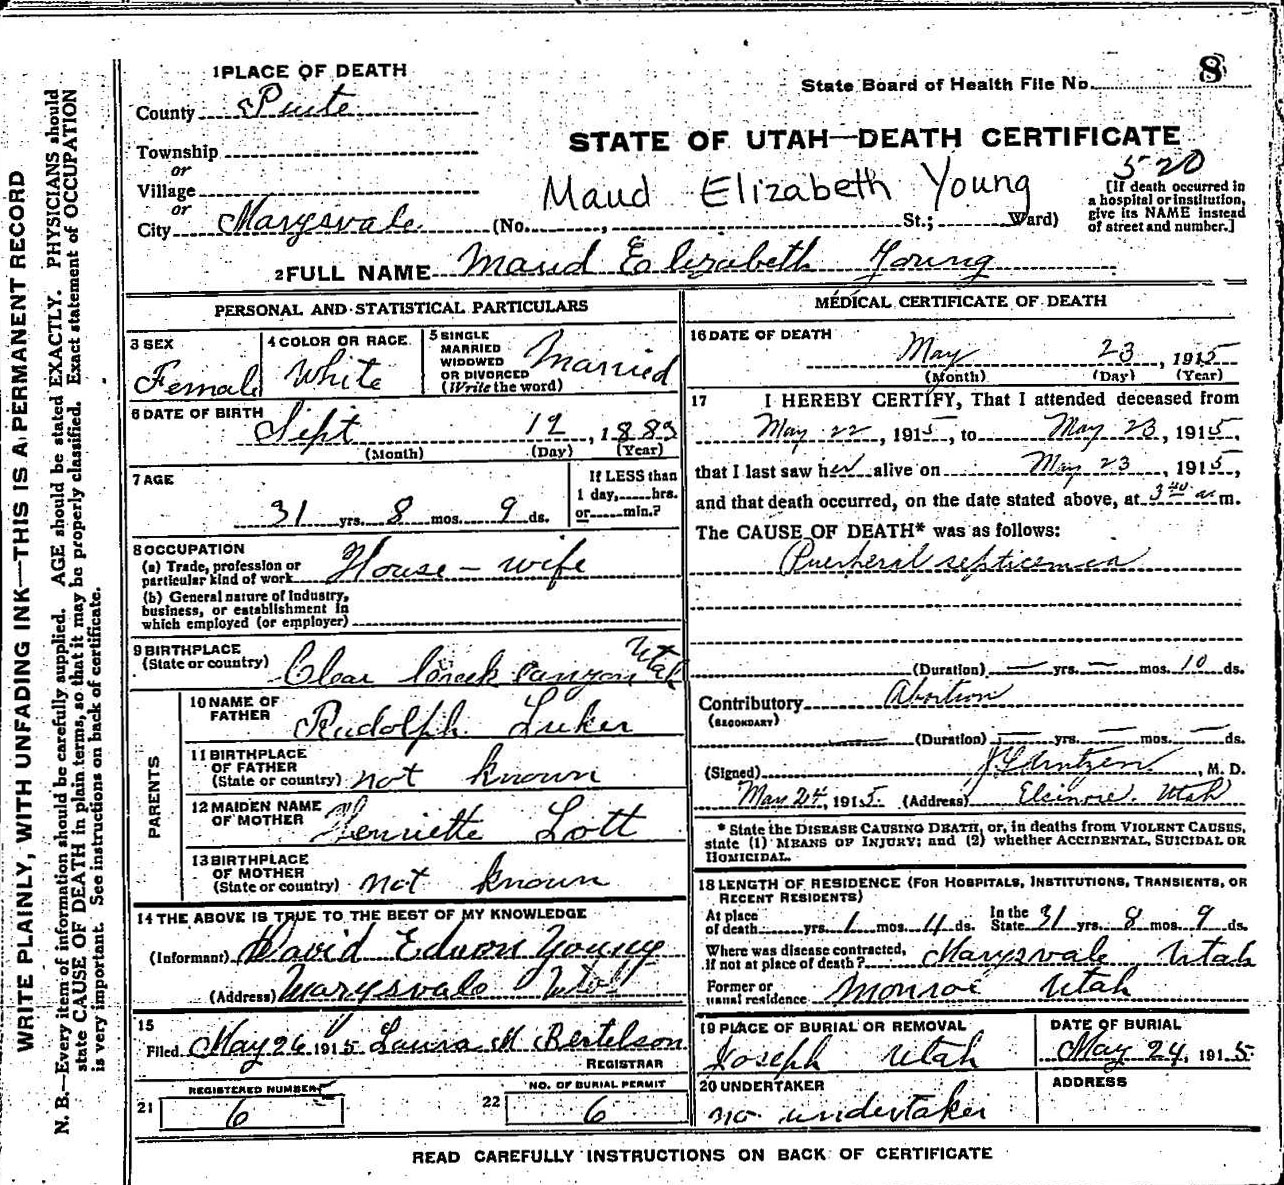 WRITE PLAINLY, WITH UNFADING INK—THIS IS A PERMANENT RECORD
N. B.—Every item of information should be carefully supplied. AGE should be stated EXACTLY. PHYSICIANS should
state CAUSE OF DEATH in plain terms, so that it may be properly classified. Exact statement of OCCUPATION
is very important. See instructions on back of certificate.
1 PLACE OF DEATH
State Board of Health File No. 8
County Piute
STATE OF UTAH—DEATH CERTIFICATE
520
Township
or
Village
or
City Marysvale (No. St.; Ward)
Maud Elizabeth Young
[If death occurred in
a hospital or institution,
give its NAME instead
of street and number.]
2 FULL NAME Maud Elizabeth Young
PERSONAL AND STATISTICAL PARTICULARS
3 SEX
Female
4 COLOR OR RACE
White
5 SINGLE
MARRIED
WIDOWED
OR DIVORCED
(Write the word)
Married
6 DATE OF BIRTH
Sept 12, 1883
(Month) (Day) (Year)
7 AGE
31 yrs. 8 mos. 9 ds.
If LESS than
1 day, hrs.
or min.?
8 OCCUPATION
(a) Trade, profession or
particular kind of work House-wife
(b) General nature of industry,
business, or establishment in
which employed (or employer)
9 BIRTHPLACE
(State or country) Clear Creek canyon Utah
PARENTS
10 NAME OF
FATHER
Rudolph Luker
11 BIRTHPLACE
OF FATHER
(State or country) not known
12 MAIDEN NAME
OF MOTHER Henriette Lott
13 BIRTHPLACE
OF MOTHER
(State or country) not known
14 THE ABOVE IS TRUE TO THE BEST OF MY KNOWLEDGE
(Informant) David Edwon Young
(Address) Marysvale Utah
15
Filed May 26 1915 Laura M Bertelson
REGISTRAR
21 REGISTERED NUMBER
6
22 NO. OF BURIAL PERMIT
6
MEDICAL CERTIFICATE OF DEATH
16 DATE OF DEATH
May 23, 1915
(Month) (Day) (Year)
17 I HEREBY CERTIFY, That I attended deceased from
May 22, 1915, to May 23, 1915,
that I last saw her alive on May 23, 1915,
and that death occurred, on the date stated above, at 3 40 a. m.
The CAUSE OF DEATH* was as follows:
Puerheril septicemea
(Duration) — yrs. — mos. 10 ds.
Contributory Abortion
(SECONDARY)
(Duration) — yrs. — mos. — ds.
(Signed) , M. D.
May 24, 1915. (Address) Elsinore. Utah
* State the DISEASE CAUSING DEATH, or, in deaths from VIOLENT CAUSES,
state (1) MEANS OF INJURY; and (2) whether ACCIDENTAL, SUICIDAL OR
HOMICIDAL.
18 LENGTH OF RESIDENCE (FOR HOSPITALS, INSTITUTIONS, TRANSIENTS, OR
RECENT RESIDENTS)
At place
of death yrs. 1 mos. 4 ds.
In the
State 31 yrs. 8 mos. 9 ds.
Where was disease contracted,
if not at place of death? Marysvale Utah
Former or
usual residence Monroe Utah
19 PLACE OF BURIAL OR REMOVAL
Joseph Utah
DATE OF BURIAL
May 24, 1915.
20 UNDERTAKER
no undertaker
ADDRESS
READ CAREFULLY INSTRUCTIONS ON BACK OF CERTIFICATE